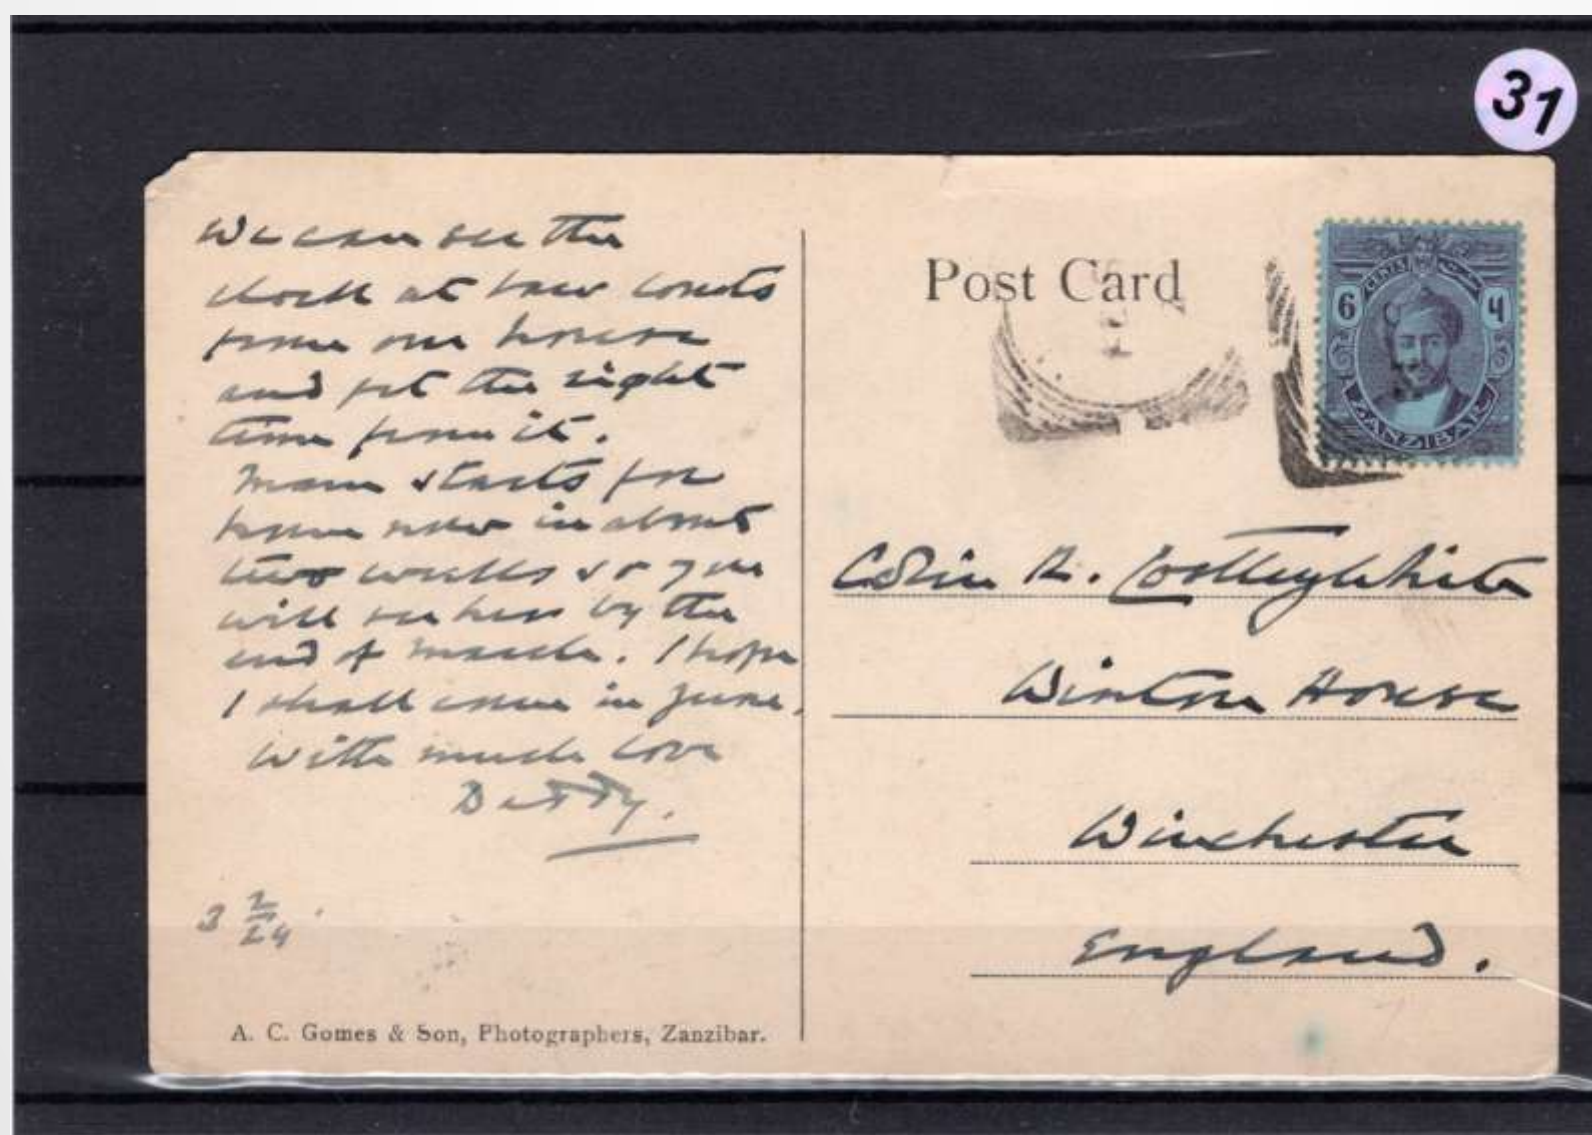 31
We can see the
clock at Law Courts
from our house
and get the right
time from it.
Mam starts for
home now in about
two weeks so you
will see her by the
end of March. I hope
I shall come in June.
With much love
Daddy.
3 2/24
A. C. Gomes & Son, Photographers, Zanzibar.
Post Card
CENTS
6 4
ZANZIBAR
Colin R.
Winton House
Winchester
England.